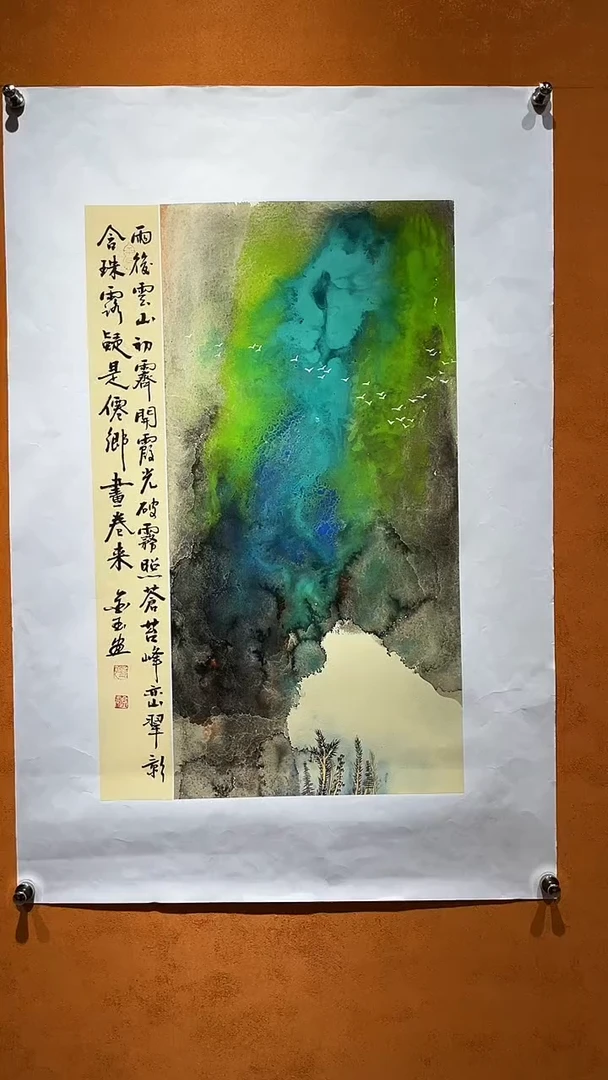 雨後雲山初霽開霞光破霧照蒼苔峰峦翠影
含珠露疑是僊鄉畫卷来 金玉画